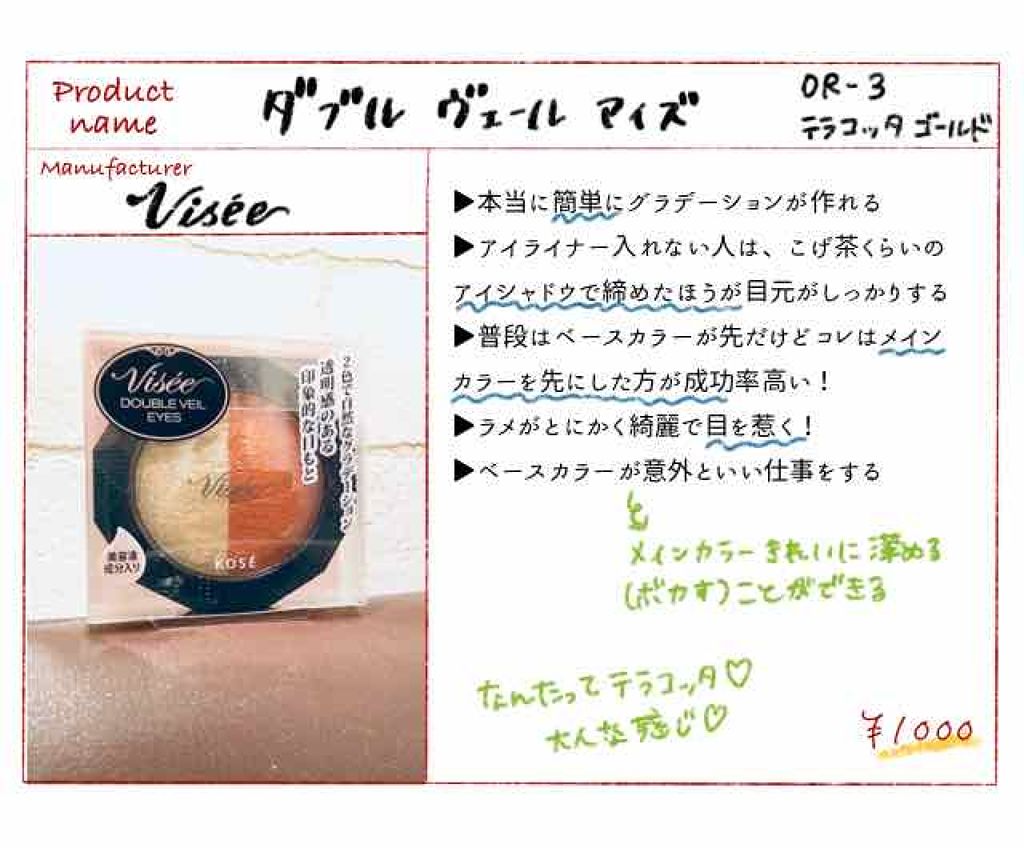 Product
name
ダブル ヴェール アイズ
OR-3
テラコッタ ゴールド
Manufacturer
Visée
▶本当に簡単にグラデーションが作れる
▶アイライナー入れない人は、こげ茶くらいの
アイシャドウで締めたほうが目元がしっかりする
▶普段はベースカラーが先だけどコレはメイン
カラーを先にした方が成功率高い！
▶ラメがとにかく綺麗で目を惹く！
▶ベースカラーが意外といい仕事をする
メインカラーきれいに深める
(ボカす)ことができる
なんたってテラコッタ♡
大人な感じ♡
¥1000
Visée
DOUBLE VEIL
EYES
2色で自然なグラデーション
透明感のある
印象的な目もと
Visée
KOSÉ
美容液
成分入り